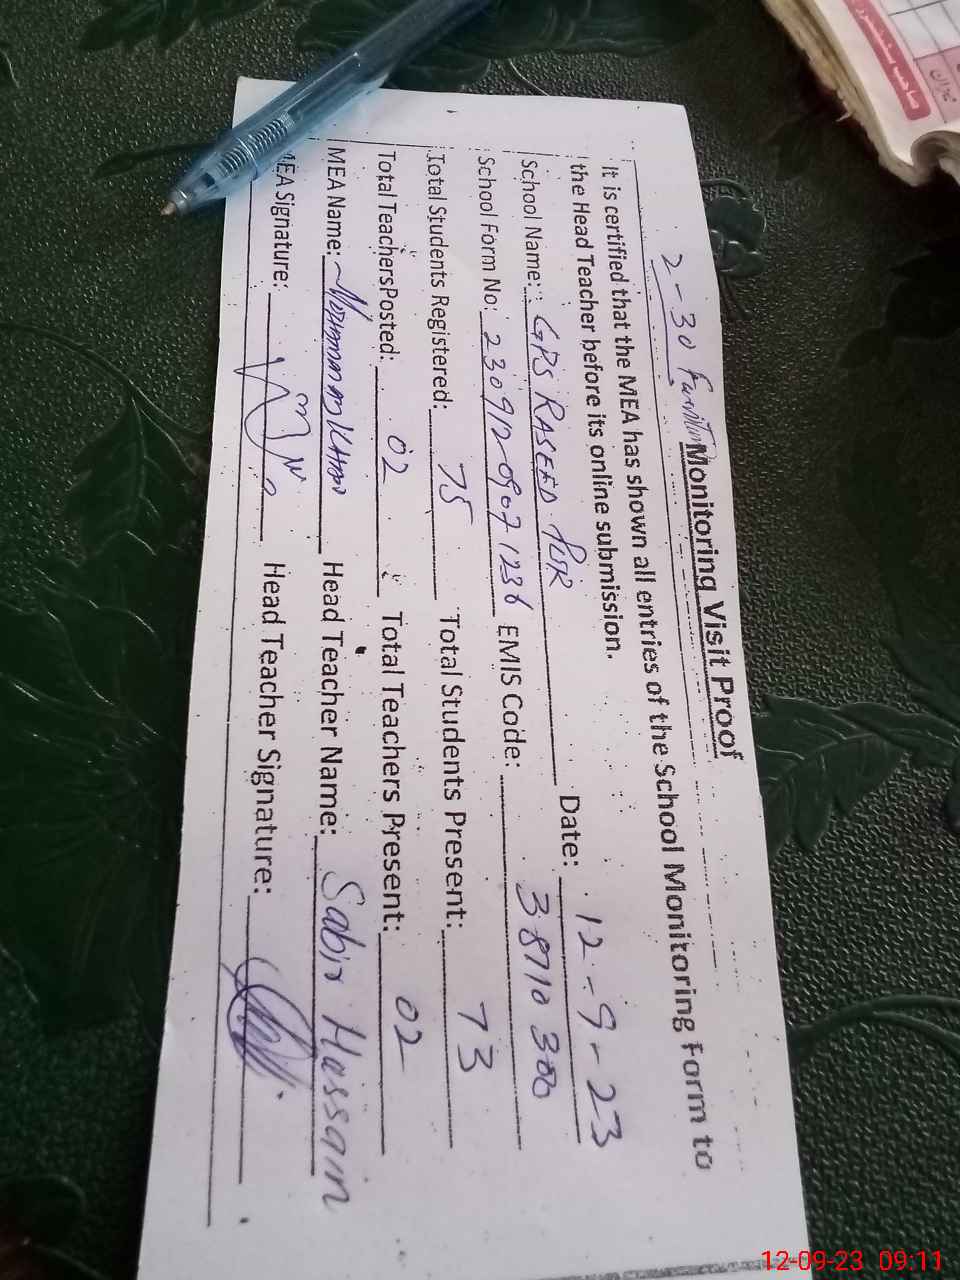 Monitoring Visit Proof
2-30
It is certified that the MEA has shown all entries of the School Monitoring Form to
the Head Teacher before its online submission.
School Name: GPS RASEED PUR Date: 12-9-23
School Form No: EMIS Code: 38710300
Total Students Registered: 75 Total Students Present: 73
Total TeachersPosted: 02 Total Teachers Present: 02
MEA Name: Head Teacher Name: Sabir Hussain
MEA Signature: Head Teacher Signature:
12-09-23 09:11